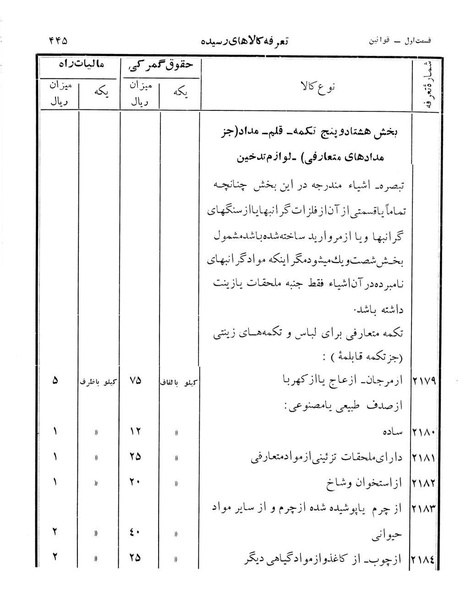 قسمت اول – قوانین تعرفه کالاهای رسیده ۴۴۵
شمارهٔ تعرفه نوع کالا حقوق گمرکی مالیات راه
یکه میزان ریال یکه میزان ریال
بخش هشتاد و پنج تکمه- قلم- مداد(جز
مدادهای متعارفی) - لوازم تدخین
تبصره- اشیاء مندرجه در این بخش چنانچه
تماماً یا قسمتی از آن از فلزات گرانبها یا از سنگهای
گرانبها و یا از مروارید ساخته شده باشد مشمول
بخش شصت و یک میشود مگر اینکه مواد گرانبهای
نامبرده در آن اشیاء فقط جنبه ملحقات یا زینت
داشته باشد.
تکمه متعارفی برای لباس و تکمه‌های زینتی
(جز تکمه قابلمهٔ) :
۲۱۷۹ از مرجان- از عاج یا از کهربا کیلو بالفاف ۷۵ کیلو باظرف ۵
از صدف طبیعی یا مصنوعی:
۲۱۸۰ ساده » ۱۲ » ۱
۲۱۸۱ دارای ملحقات تزئینی از مواد متعارفی » ۲۵ » ۱
۲۱۸۲ از استخوان و شاخ » ۲۰ » ۱
۲۱۸۳ از چرم یا پوشیده شده از چرم و از سایر مواد
حیوانی » ۴۰ » ۲
۲۱۸۴ از چوب- از کاغذ و از مواد گیاهی دیگر » ۲۵ » ۲